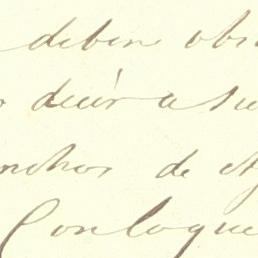 deben obs
decir a su
nchos de
Con loque